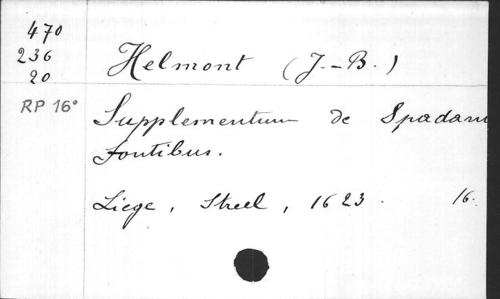 470
236
20
RP 16°
Helmont (J.-B.)
Supplementum de Spadam
Fontibus.
Liege, Streel, 1623. 16.